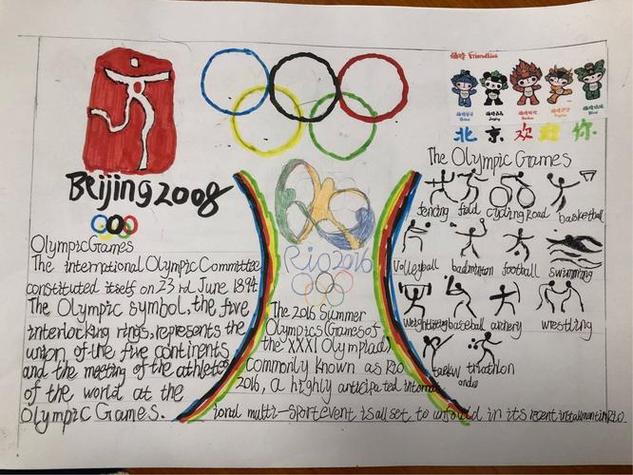 Beijing 2008
Olympic Games
The international Olympic Committee
constituted itself on 23rd June 1894.
The Olympic symbol, the five
interlocking rings, represents the
union of the five continents
and the meeting of the athletes
of the world at the
Olympic Games.
Rio2016
The 2016 Summer
Olympics (Games of
the XXXI Olympiad)
commonly known as Rio
2016, a highly anticipated internat
ional multi-sport event is all set to unfold in its recent in
Friendlies
北京欢迎你
The Olympic Games
fencing field cycling Road basketball
Volleyball badminton football swimming
weightlifting baseball archery wrestling
taekw triathlon
ondo